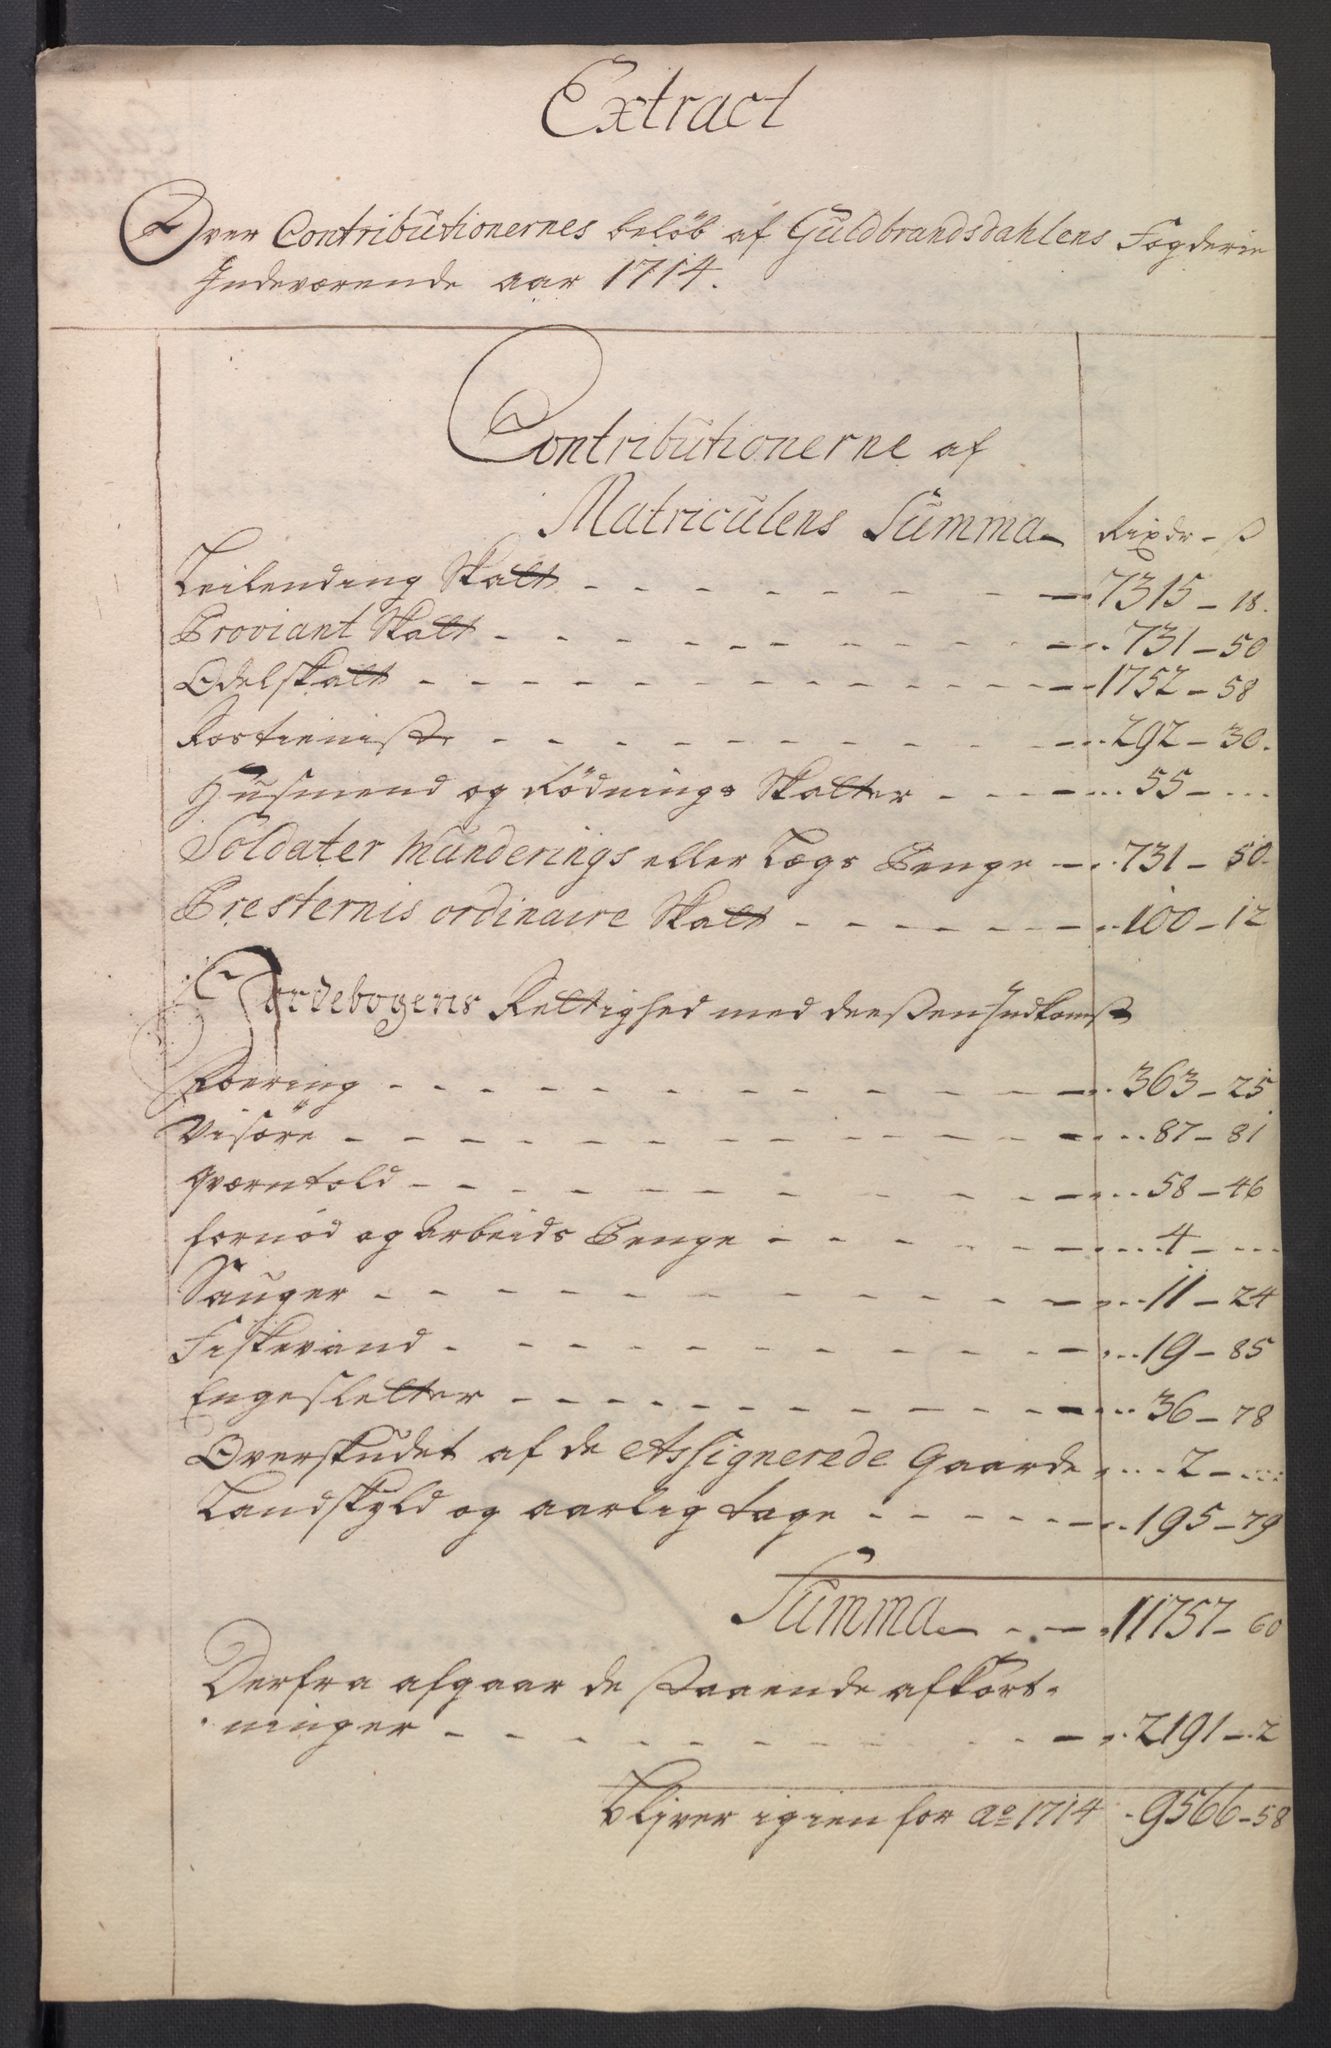 Extract
Over Contributionernes beløb af Guldbrandsdahlens Fogderie
Indeværende aar 1714.
Contributionerne af
Matriculens Summa Rixdr - ß
Leilending Skatt - 7315 - 18.
Proviant Skatt - 731 - 50
Odelskatt - 1752 - 58
Rostieniste - 292 - 30.
Husmend og Rødnings Skatter - 55 - ...
Soldater Munderings eller Lægs Penge - 731 - 50.
Presternis ordinaire Skatt - 100 - 12
Jordebogens Rettighed med deessen Indkomst
Foering - 363 - 25
Visøre - 87 - 81
Qværntold - 58 - 46
fornød og Arbeids Penge - 4 - ...
Sauger - 11 - 24
Fiskevand - 19 - 85
Engesletter - 36 - 78
Overskudet af de Assignerede Gaarde - 2 - ...
Landskyld og aarlig tage - 195 - 79
Summa - 11757 - 60
Derfra afgaar de staaende afkort-
ninger - 2191 - 2
bliver igien for Ao 1714 - 9566 - 58